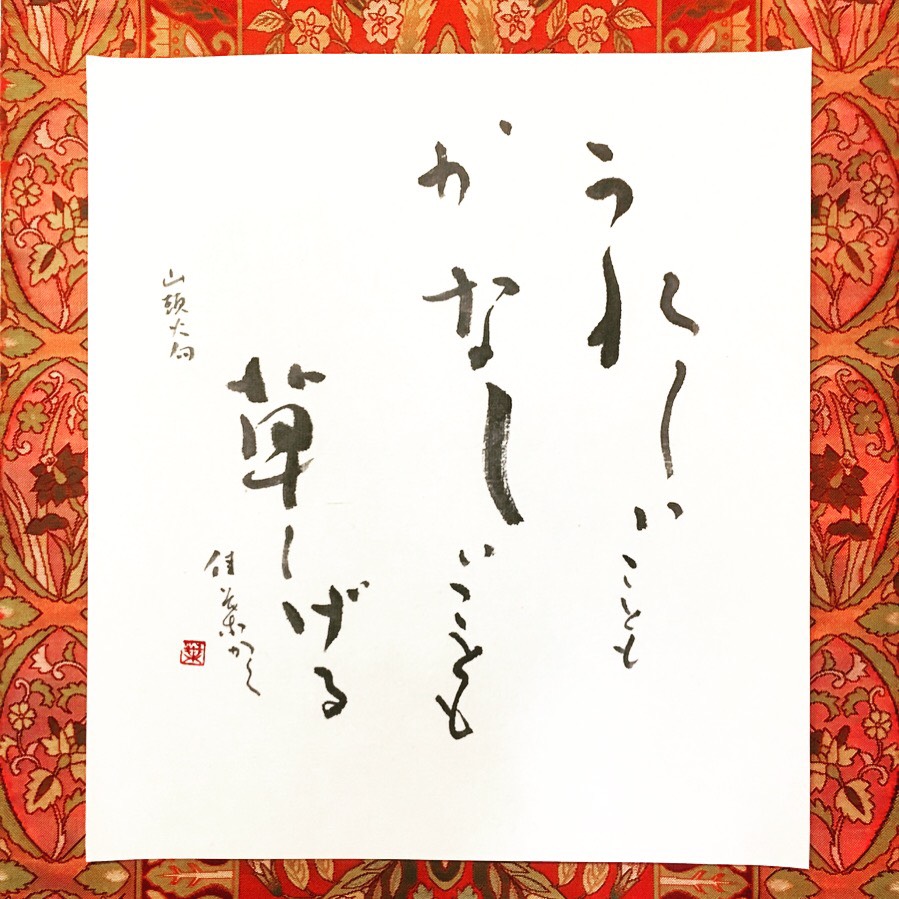 うれしいことも
かなしいことも
草しげる
山頭火句